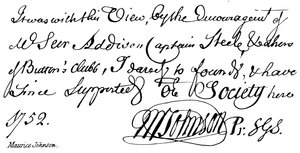 It was with this View, by the Encouragemt of
Mr Secr Addison Captain Steele, & others
of Button's Clubb, I dared to found it, & have
Since Supported the Society here
1752. MJohnson Pr. SGS.
Maurice Johnson.